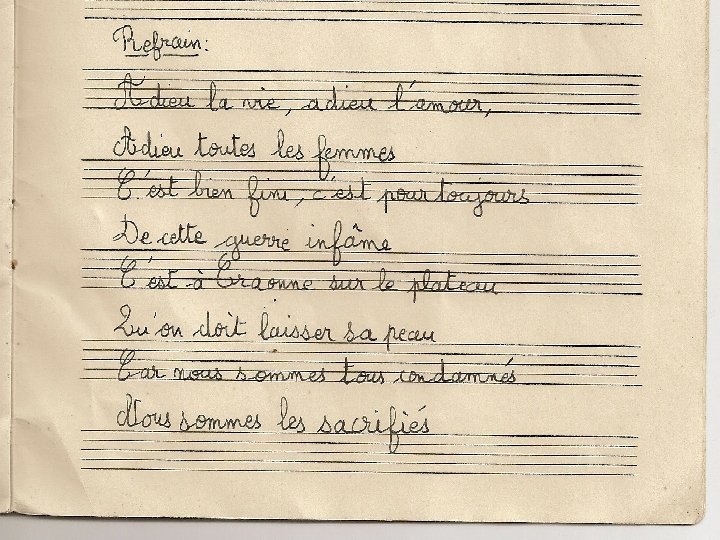 Refrain:
Adieu la vie, adieu l'amour,
Adieu toutes les femmes
C'est bien fini, c'est pour toujours
De cette guerre infâme
C'est à Craonne sur le plateau
Qu'on doit laisser sa peau
Car nous sommes tous condamnés
Nous sommes les sacrifiés